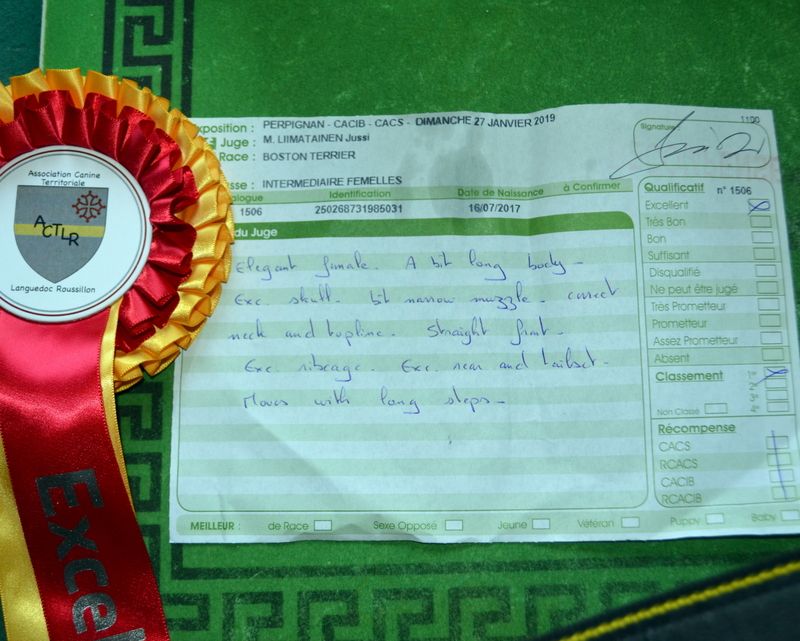 Association Canine
Territoriale
ACTLR
Languedoc Roussillon
Excel
xposition : PERPIGNAN - CACIB - CACS - DIMANCHE 27 JANVIER 2019
Juge : M. LIIMATAINEN Jussi
Race : BOSTON TERRIER
sse : INTERMEDIAIRE FEMELLES
alogue Identification Date de Naissance à Confirmer
1506 250268731985031 16/07/2017
du Juge
Elegant female. A bit long body -
Exc. skull. bit narrow muzzle. correct
neck and topline. Straight front -
Exc. ribcage. Exc. rear and tailset -
Moves with long steps -
1100
Signature :
Qualificatif n° 1506
Excellent
Très Bon
Bon
Suffisant
Disqualifié
Ne peut être jugé
Très Prometteur
Prometteur
Assez Prometteur
Absent
Classement 1er
2e
3e
Non Classé 4e
Récompense
CACS
RCACS
CACIB
RCACIB
MEILLEUR : de Race Sexe Opposé Jeune Vétéran Puppy Baby